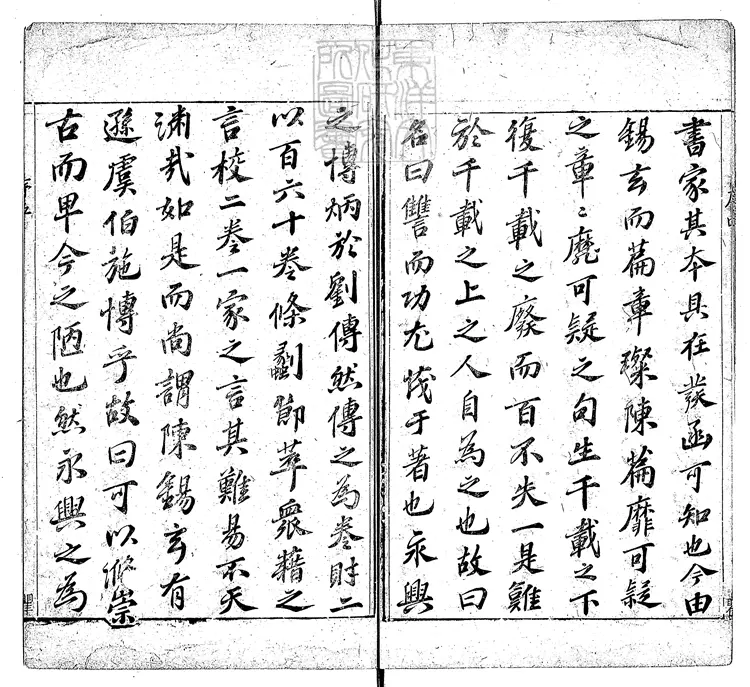 書家其本具在發函可知也今由
錫玄而篇章璨陳篇靡可疑
之章〻靡可疑之句生千載之下
復千載之廢而百不失一是難
於千載之上之人自為之也故曰
名曰讐而功尤茂于著也永興
之博炳於劉傳然傳之為卷財二
以百六十卷條劙節萃衆籍之
言校二卷一家之言其難易不天
淵哉如是而尚謂陳錫玄有
遜虞伯施博乎故曰可以滌崇
古而卑今之陋也然永興之為